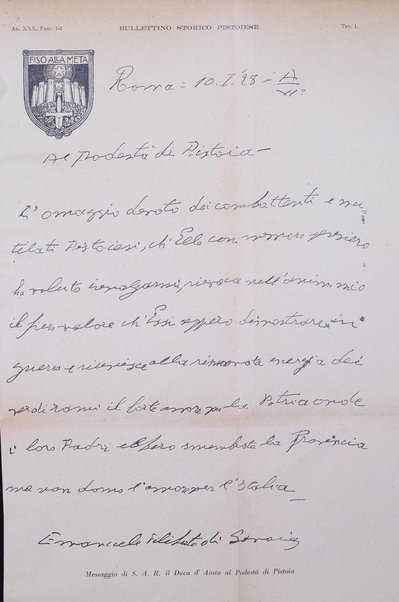 An. XXX, Fasc. 1-2
BULLETTINO STORICO PISTOIESE
Tav. I.
FISO ALLA META
Roma = 10. I. '28 - A
VI°
Al Podestà di Pistoia -
L'omaggio devoto dei combattenti e mu=
tilati Pistoiesi, ch'Ella con memore pensiero
ha voluto inviarmi, rievoca nell'animo mio
il fiero valore ch'Essi seppero dimostrare in
guerra e riunisce alla rinnovata energia dei
verdi rami il forte amore per la Patria onde
i loro Padri ebbero smembrata la Provincia
ma non domo l'amor per l'Italia -
Emanuele Filiberto di Savoia
Messaggio di S. A. R. il Duca d' Aosta al Podestà di Pistoia